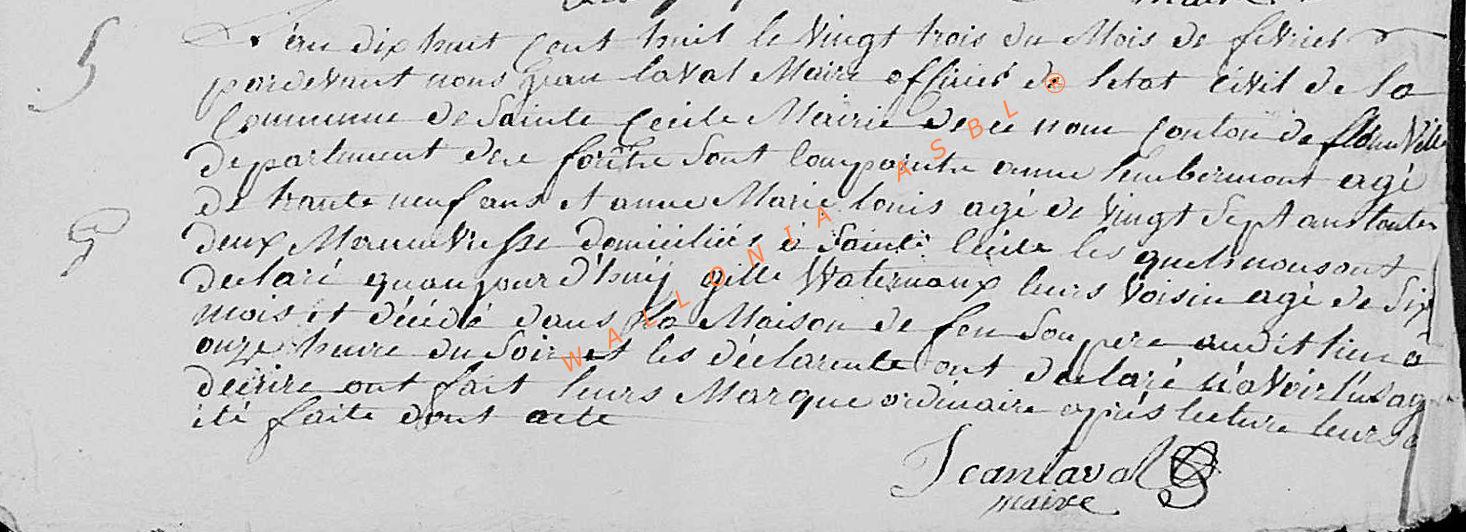 maire
5 L'an dix huit cent huit le vingt trois du Mois de fevrier
pardevant nous Jean laval Maire officier de letat civil de la
Commune de Sainte Cecile Mairie de ce nom Canton de florenville
departement des foret sont comparüe anne humbermont agé
de trante neuf ans et anne Marie louis agé de vingt sept ans toutes
G
deux Manuvresse domiciliés à Sainte Cécile les quels nous ont
declaré quaujourd'huij gille Waternaux leurs voisin agé de six
mois et décédé dans la Maison de feu son pere audit lieu a
onze heure du soir et les déclarente ont declaré n'avoir l'usage
décrire ont fait leurs Marque ordinaire après lecture leurs a
été faite dont acte
Jean laval
maire
WALLONIA ASBL ®